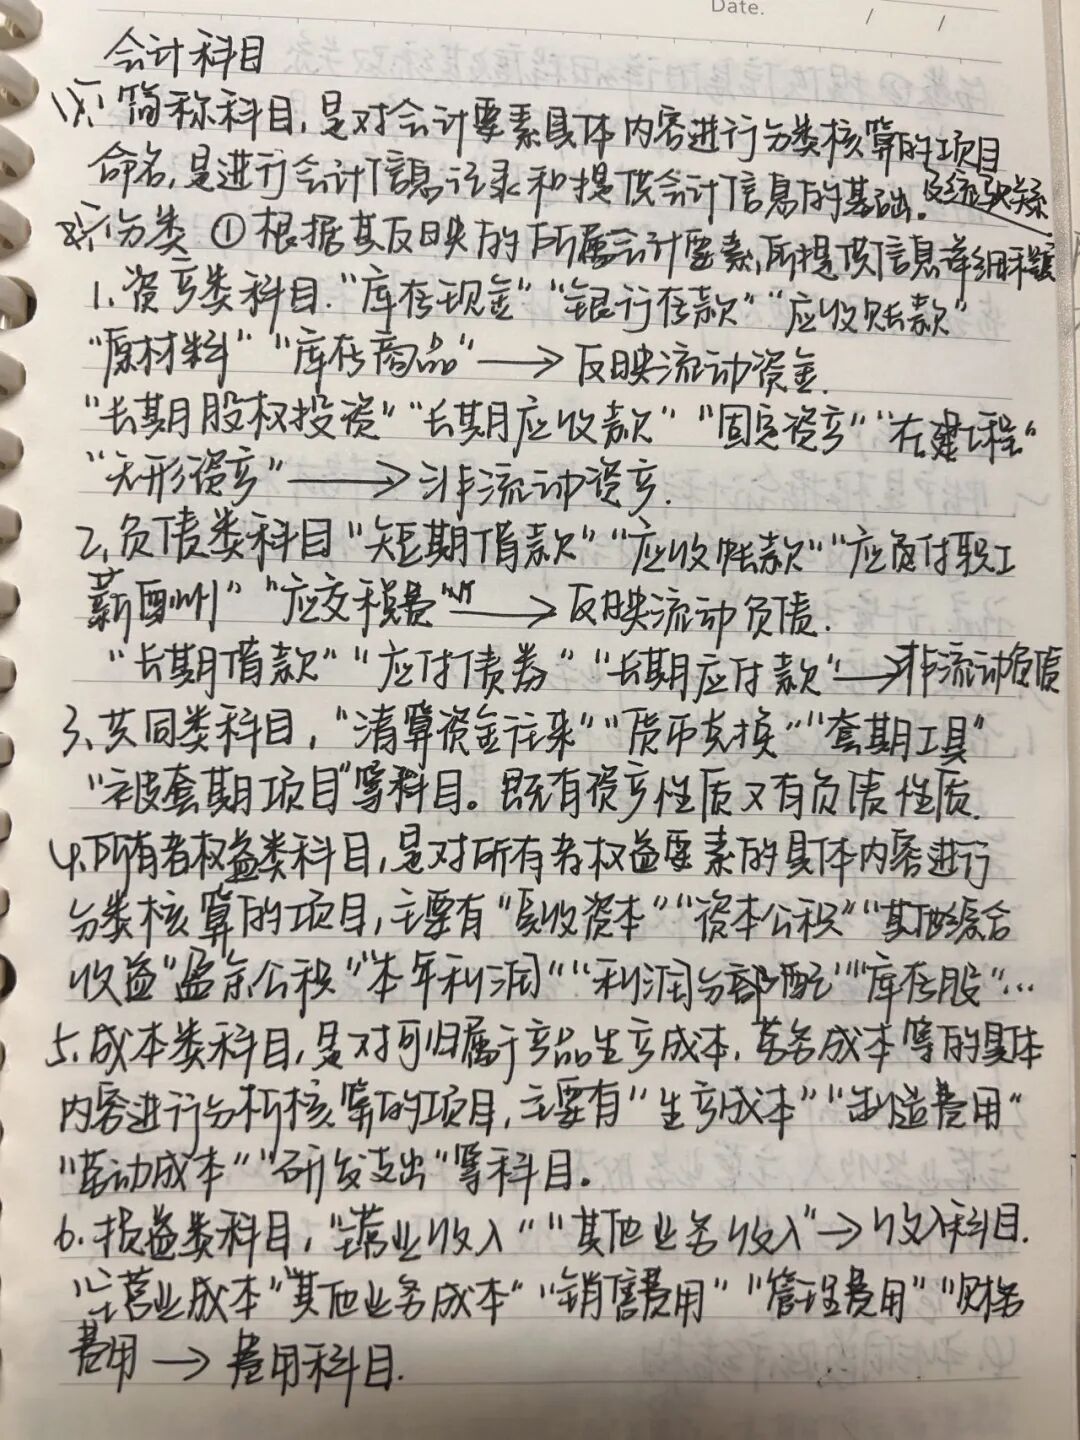 Date. / /
会计科目
1、简称科目,是对会计要素具体内容进行分类核算的项目
命名,是进行会计信息记录和提供会计信息的基础。及统驭关系
2、分类 ①根据其反映的所属会计要素,所提供信息详细程度
1、资产类科目."库存现金""银行存款""应收账款"
"原材料" "库存商品"→反映流动资金.
"长期股权投资""长期应收款" "固定资产""在建工程"
"无形资产"→非流动资产.
2、负债类科目"短期借款""应收帐款""应付职工
薪酬""应交税费"→反映流动负债.
"长期借款""应付债券""长期应付款"→非流动负债
3、共同类科目,"清算资金往来""货币兑换""套期工具"
"被套期项目"等科目。既有资产性质又有负债性质.
4、所有者权益类科目,是对所有者权益要素的具体内容进行
分类核算的项目,主要有"实收资本""资本公积""其他综合
收益"盈余公积""本年利润""利润分配""库存股"…
5、成本类科目,是对可归属于产品生产成本.劳务成本等的具体
内容进行分析核算的项目,主要有"生产成本""制造费用"
"劳动成本""研发支出"等科目。
6、损益类科目,"主营业收入""其他业务收入"→收入科目.
"主营业成本"其他业务成本""销售费用""管理费用""财务
费用→费用科目.